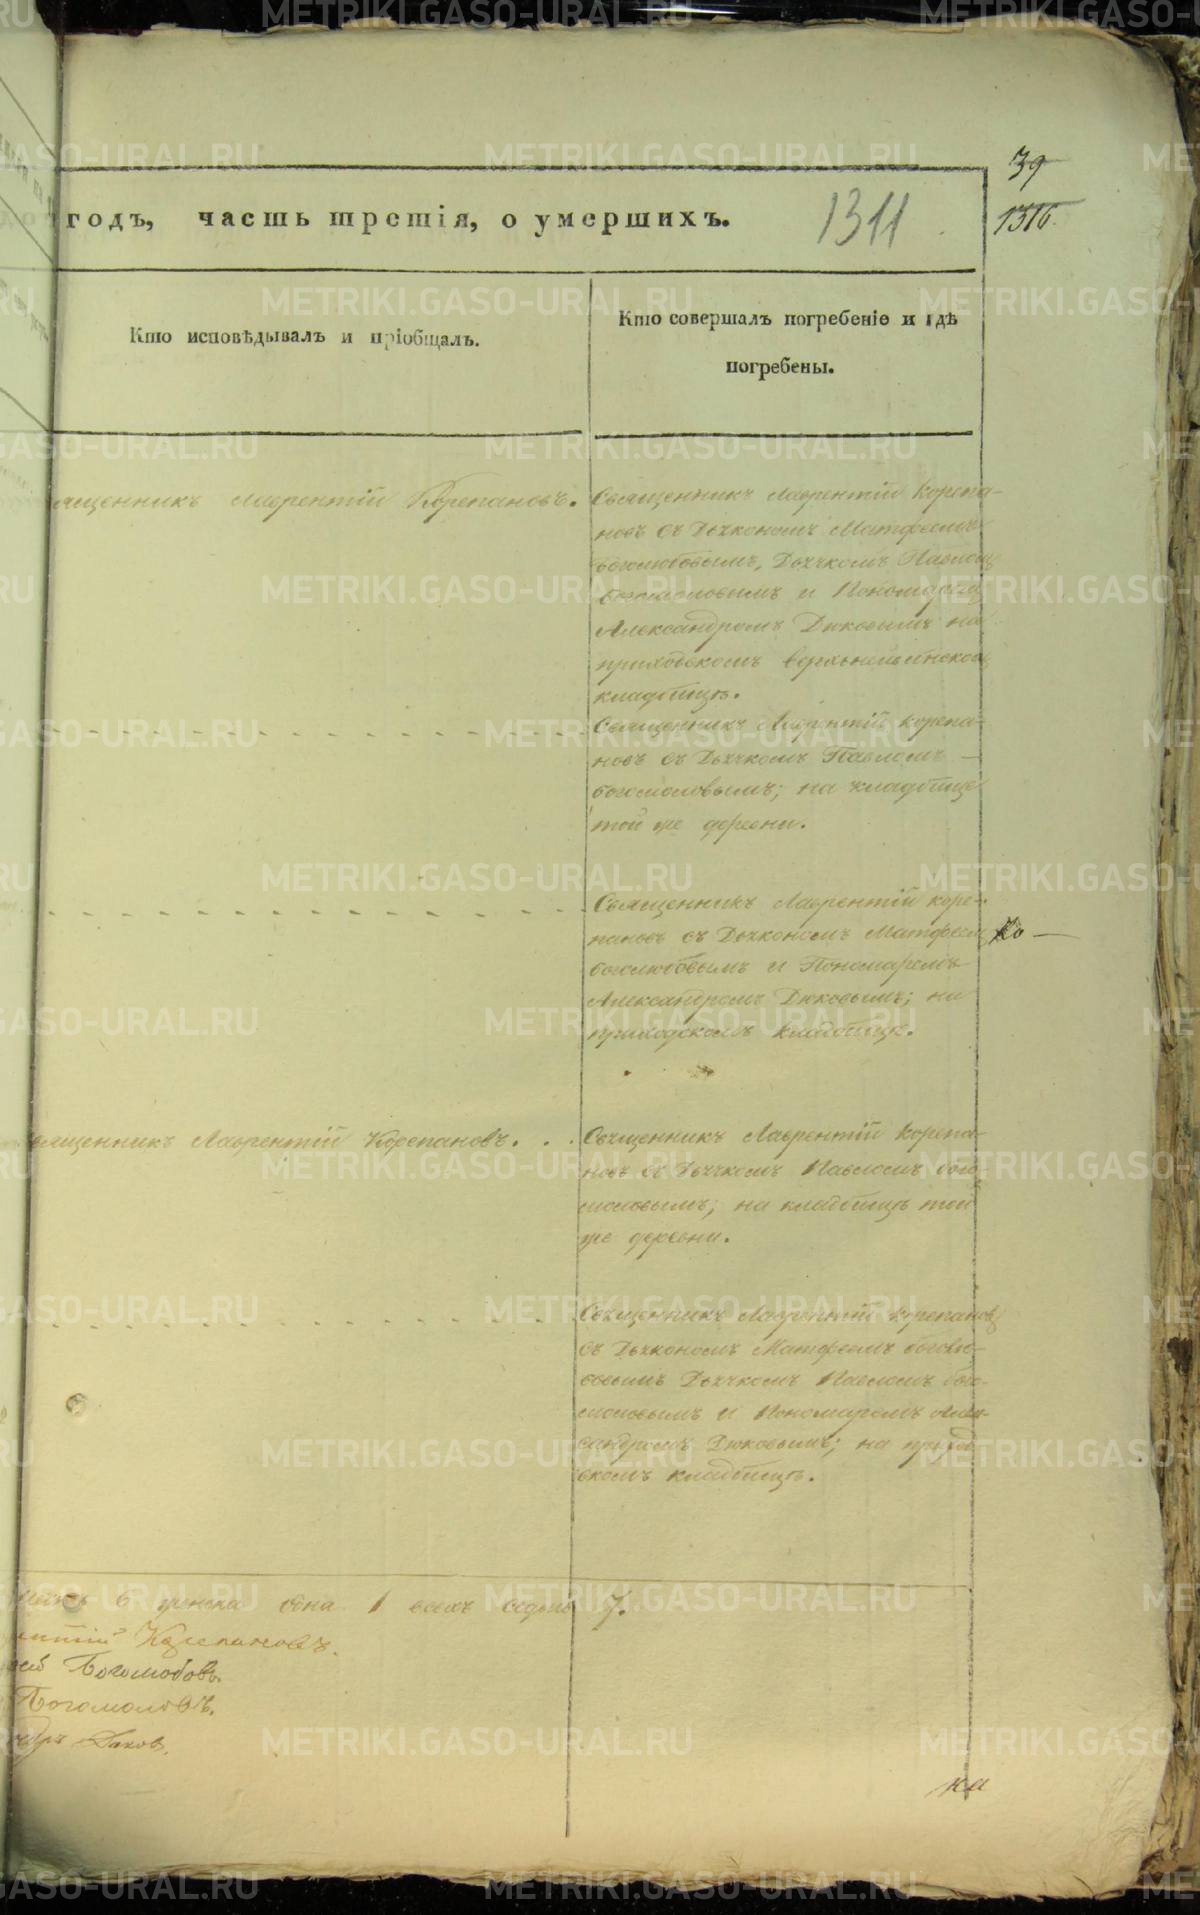 39
годъ, часть третія, о умершихъ.
1311
1316.
Кто исповѣдывалъ и пріобщалъ.
Кто совершалъ погребеніе и гдѣ
погребены.
ященникъ Лаврентій Корепановъ.
Священникъ Лаврентій Корепа-
новъ съ Діакономъ Матфеемъ
Боголюбовымъ, Дьячкомъ Павломъ
Богомоловымъ и Пономаремъ
Александромъ Дюковымъ на
приходскомъ верхнейвинском
кладбищѣ.
Священникъ Лаврентій Корепа-
новъ съ Дьячкомъ Павломъ —
Богомоловымъ; на кладбище
той же деревни.
Священникъ Лаврентій Коре-
пановъ съ Діакономъ Матфеем
Ко —
Боголюбовымъ и Пономаремъ
Александромъ Дюковымъ; на
приходскомъ кладбищѣ.
вященникъ Лаврентій Корепановъ. . .
Священникъ Лаврентій Корепа-
новъ съ Дьячкомъ Павломъ Бого-
моловымъ; на кладбищѣ той
же деревни.
Священникъ Лаврентій Корепановъ
съ Діакономъ Матфеемъ Боголю-
бовымъ Дьячкомъ Павломъ Бого-
моловымъ и Пономаремъ Алек-
сандромъ Дюковымъ; на приход
скомъ кладбищѣ.
6 женска една 1 всехъ седмь 7.
ентій Корепановъ.
ей Боголюбовъ.
Богомоловъ.
ндръ Дюков.
на
METRIKI.GASO-URAL.RU